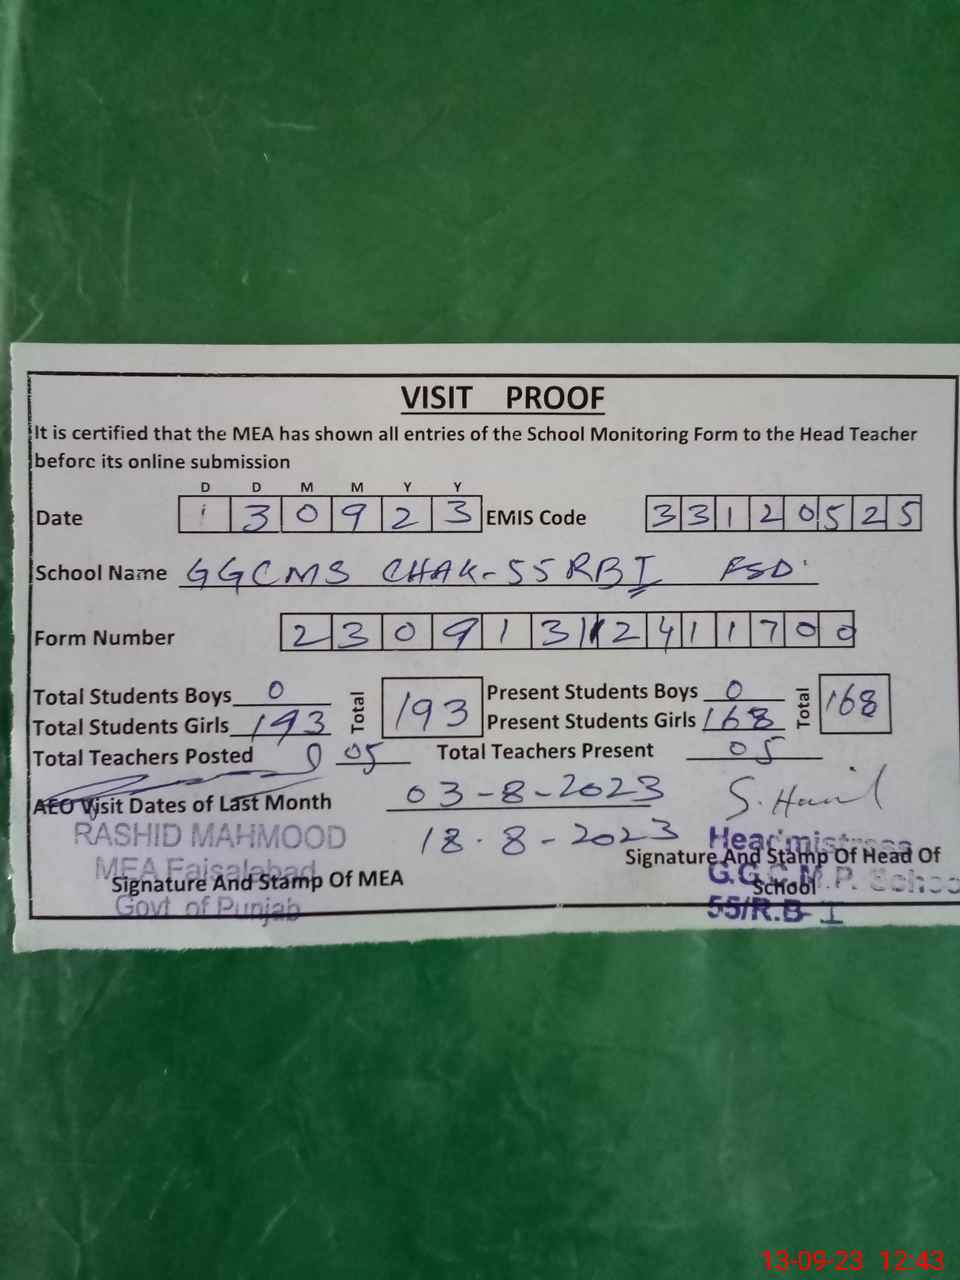 VISIT PROOF
It is certified that the MEA has shown all entries of the School Monitoring Form to the Head Teacher
before its online submission
D D M M Y Y
Date 1 3 0 9 2 3 EMIS Code 3 3 1 2 0 5 2 5
School Name GGCMS CHAK-55RBI FSD
Form Number 2 3 0 9 1 3 1 2 4 1 1 7 0 0
Total Students Boys 0 Total 193 Present Students Boys 0 Total 168
Total Students Girls 193 Present Students Girls 168
Total Teachers Posted 05 Total Teachers Present 05
AEO Visit Dates of Last Month 03-8-2023
18.8-2023
RASHID MAHMOOD
MEA Faisalabad
Govt of Punjab
Signature And Stamp Of MEA
Headmistress
G.G.C.M.P. School
55/R.B-I
Signature And Stamp Of Head Of
School
13-09-23 12:43